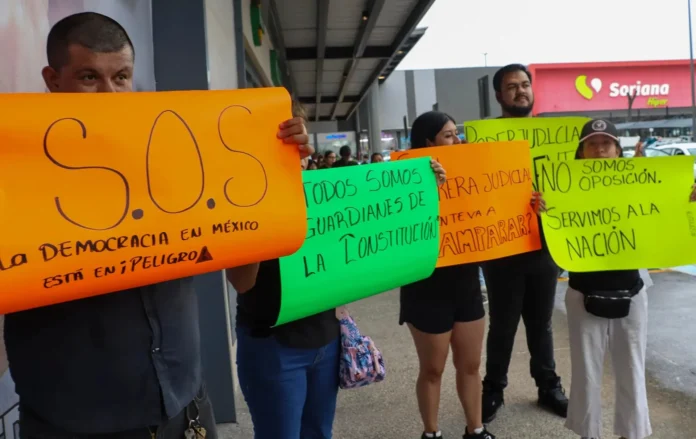 S.O.S
La DEMOCRACIA EN MÉXICO
ESTÁ EN ¡PELIGRO
TODOS SOMOS
GUARDIANES DE
LA CONSTITUCIÓN
RERA JUDICIAL
NTEVA A
AMPARAR?
PODER JUDICIA
NO SOMOS
OPOSICIÓN.
SERVIMOS A LA
NACIÓN
Soriana
Híper